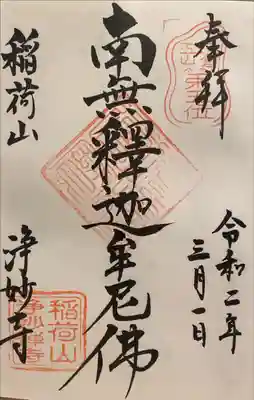 奉拝
令和二年
三月一日
南無釋迦牟尼佛
稲荷山
浄妙寺
稲荷山
浄妙禅寺